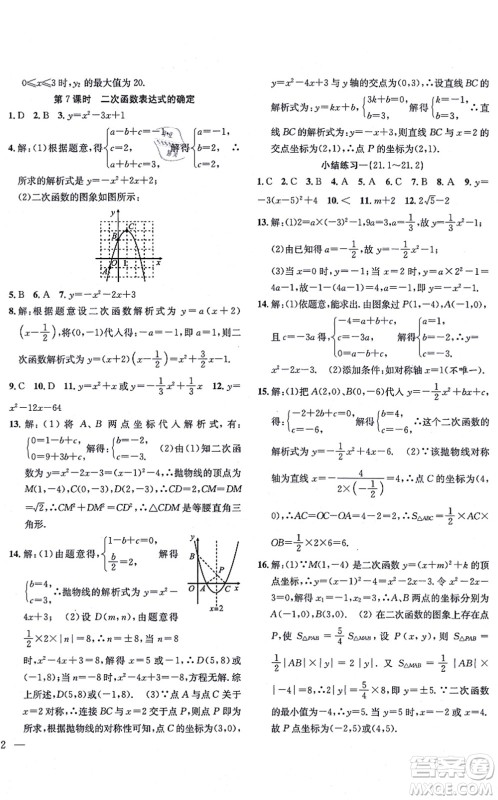 0≤x≤3 时, y₂ 的最大值为 20.
第 7 课时 二次函数表达式的确定
1. D 2. B 3. y=x²-3x+1
4. 解:(1)根据题意,得{a-b+c=-3, b/-2a=, a+b+c=3, 解得{a=-1, b=, c=
所求的解析式为 y=-x²+
(2)二次函数的图象如图所示.
5. B 6. A 7. y=-x²-2x+3
8. 解:根据题意设二次函数解析式为 y=a(x+2)
(x-1/2),将(0,-1)代入得:-a=-1,a=1,则二
次函数解析式为 y=x²+3/2x-1.
9. C 10. D 11. y=x²+x 或 y=-1/3x²+1/3x 12. y=
x²-12x-64
13. 解:(1)将 A、B 两点坐标代入解析式得:
{0=1-b+c, 0=9+3b+c, 解得{b=-2, c=-3. (2)由(1)知二次函
数为 y=x²-2x-3=(x-1)²-4,∴抛物线的顶点为
M(1,-4),∴C(0,-3),D(2,-3),∴CM=DM
=√2,∴CM²+DM²=CD²,∴△CDM 是等腰直角三
角形.
14. 解:(1)由题意得:{1-b+c=0, b/2=2, 解得
{b=4, c=3, ∴该抛物线的解析式为 y=
x²-4x+3. (2)设 D(m,n),由题意得
1/2×2×|n|=8,∴n=±8. 当 n=8
时,x²-4x+3=8,解得:x₁=5,x₂=-1,∴D(5,8)
或(-1,8),当 n=-8 时,x²-4x+3=-8,方程无实数
解,综上所述:D(5,8)或(-1,8). (3)设 BC 交抛物
线的对称轴于 P,则点 P 即为所求作的点,此时 PA=
PC,根据抛物线的对称性,点 C 的坐标为(3,0),
2
y=x²-4x+3 与 y 轴的交点为(0,3),设直线 BC 的
解析式为:y=kx+b,{3k+b=0, b=3, 解得:{k=-1, b=3, ∴直线
BC 的解析式为:y=-x+3,则直线 BC 与 x=2 的交
点坐标为:(2,1),∴点 P 的坐标为(2,1).
小结练习一{21.1~21.2}
1. C 2. D 3. B 4. A 5. C 6. D 7. C 8. C 9. y=
-3(x-5)² 10. < 11. m+2 12. 2√5-2
13. 解:(1)-3/2=a(1-2)²-1,a=-1/2,故 y=-1/2(x
-2)²-1. (2)由已知得 a=-1/2,故 y=-1/2x²+3.
(3)当 x=0 时,y=1,∴1=a×2²-1,得 a=1/2,故 y
=1/2(x-2)²-1.
14. 解:(1)依题意,能求出. 由图象过点 P(1,-4),x₁=-1,
且 c=-3 得:{a+b+c=-4, a-b+c=0, c=-3, 解得{a=1, b=-2, c=-3. 故 y
=x²-2x-3. (2)添加条件:如对称轴 x=1(不唯一).
15. 解:(1)把 A(2,0)、B(0,-6)代入 y=-1/2x²+bx+c
得:{-2+2b+c=0, c=-6, 解得{b=4, c=-6, ∴这个二次函数的
解析式为 y=-1/2x²+4x-6. (2)∵该抛物线对称
轴为直线 x=-4/(2×(-1/2))=4,∴点 C 的坐标为(4,
0),∴AC=OC-OA=2,∴S△ABC=1/2×AC×
OB=1/2×2×6=6.
16. 解:(1)∵M(1,-4)是二次函数 y=(x+m)²+k 的顶
点坐标,∴y=(x-1)²-4=x²-2x-3,∴A(-1,0),
B(3,0). (2)在二次函数的图象上存在点 P,使
S△PAB=5/4S△MAB,设 P(x,y),则 S△PAB=
1/2|AB|×|y|=2|y|,又 S△MAB=1/2|AB|×
|-4|=8,∴2|y|=5/4×8,即 y=±5. ∵二次函数
的最小值为-4,∴y=5. 当 y=5 时,x=-2 或 x=4,
故点 P 坐标为(-2,5)或(4,5).